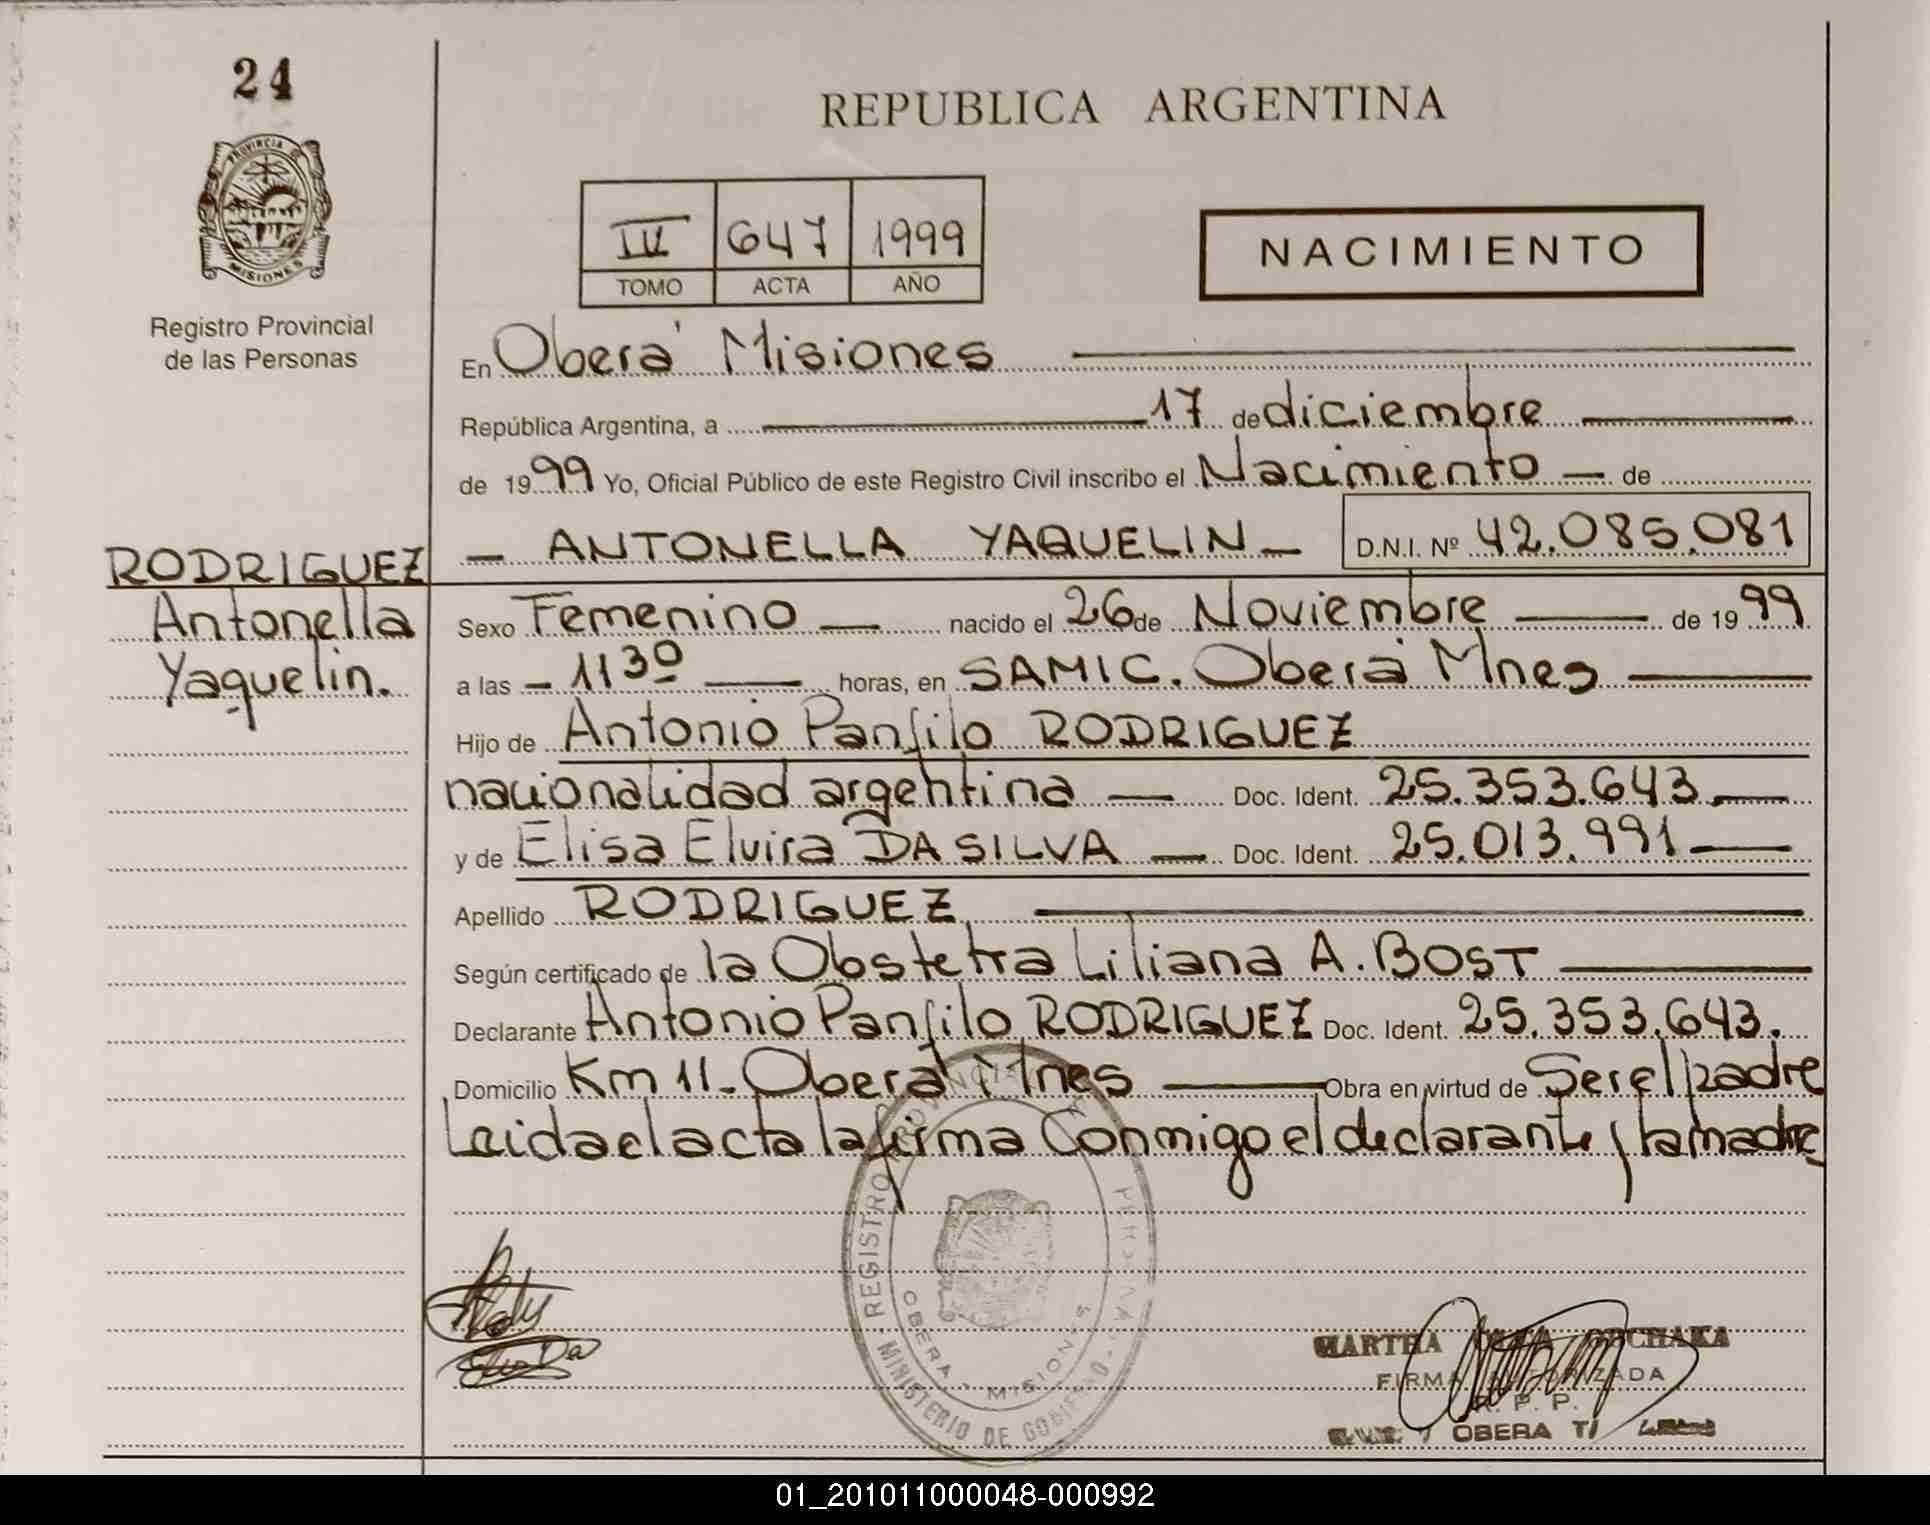 24
PROVINCIA DE
MISIONES
Registro Provincial
de las Personas
REPUBLICA ARGENTINA
647 1999
TOMO ACTA AÑO
NACIMIENTO
En Oberá Misiones
República Argentina, a 17 de diciembre
de 1999 Yo, Oficial Público de este Registro Civil inscribo el Nacimiento — de
— ANTONELLA YAQUELIN — D.N.I. Nº 42.085.081
RODRIGUEZ
Antonella
Yaquelin.
Sexo Femenino — nacido el 26 de Noviembre — de 1999
a las — 11 30 — horas, en SAMIC. Oberá Mnes —
Hijo de Antonio Panfilo RODRIGUEZ
nacionalidad argentina — Doc. Ident. 25.353.643 —
y de Elisa Elvira DA SILVA — Doc. Ident. 25.013.991 —
Apellido RODRIGUEZ —
Según certificado de la Obstetra Liliana A. BOST —
Declarante Antonio Panfilo RODRIGUEZ Doc. Ident. 25.353.643.
Domicilio Km 11 - Oberá Mnes — Obra en virtud de Ser el padre
Leida el acta la firma Conmigo el declarante y la madre
REGISTRO PROVINCIAL PERSONAS
OBERA - MISIONES
MINISTERIO DE GOBIERNO
MARTHA
FIRMA AUTORIZADA
R. P. P.
OBERA
01_201011000048-000992